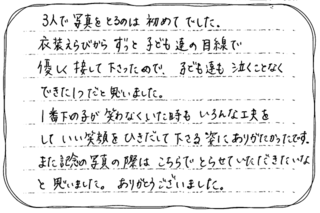 3人で写真をとるのは初めてでした。
衣装えらびから ずっと子ども達の目線で
優しく接して下さったので、子ども達も泣くことなく
できた1つだと思いました。
1番下の子が笑わなくいた時も いろんな工夫を
して いい笑顔をひきだして下さる姿にありがたかったです。
また記念の写真の際は こちらでとらせていただきたいな
と思いました。ありがとうございました。